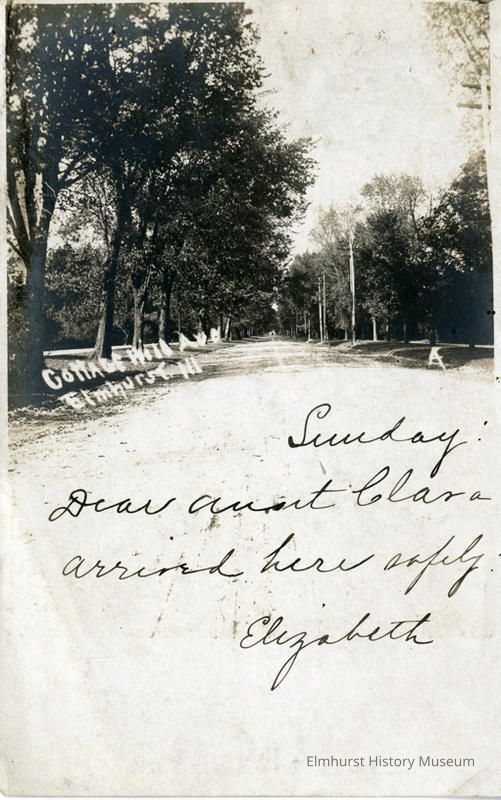 Cottage Hill Ave
Elmhurst, Ill
A
Sunday.
Dear aunt Clara
arrived here safely.
Elizabeth
Elmhurst History Museum